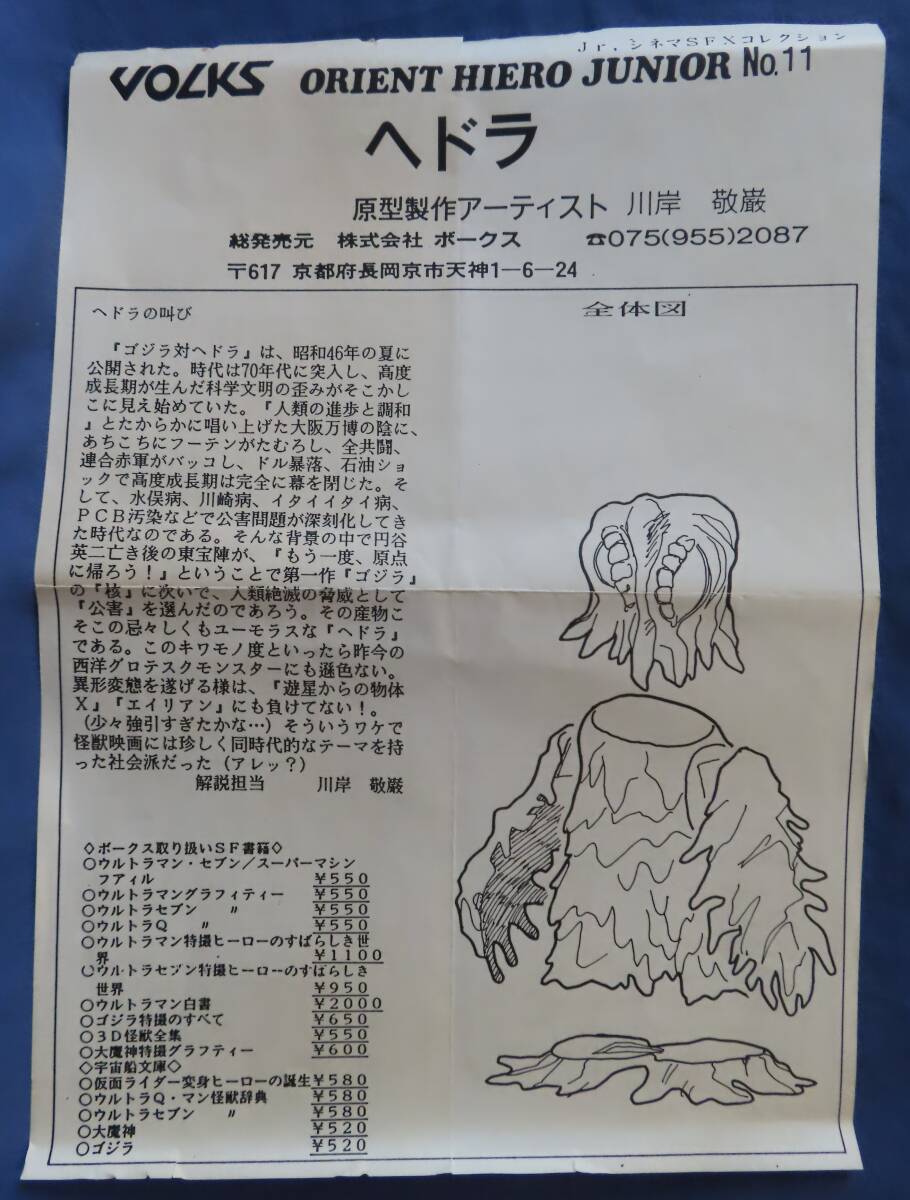 Jr.シネマSFXコレクション
VOLKS ORIENT HIERO JUNIOR No.11
ヘドラ
原型製作アーティスト 川岸 敬厳
総発売元 株式会社 ボークス ☎075(955)2087
〒617 京都府長岡京市天神1-6-24
ヘドラの叫び
全体図
『ゴジラ対ヘドラ』は、昭和46年の夏に
公開された。時代は70年代に突入し、高度
成長期が生んだ科学文明の歪みがそこかし
こに見え始めていた。『人類の進歩と調和
』とたからかに唱い上げた大阪万博の陰に、
あちこちにフーテンがたむろし、全共闘、
連合赤軍がバッコし、ドル暴落、石油ショ
ックで高度成長期は完全に幕を閉じた。そ
して、水俣病、川崎病、イタイイタイ病、
PCB汚染などで公害問題が深刻化してき
た時代なのである。そんな背景の中で円谷
英二亡き後の東宝陣が、『もう一度、原点
に帰ろう!』ということで第一作『ゴジラ』
の『核』に次いで、人類絶滅の脅威として
『公害』を選んだのであろう。その産物こ
そこの忌々しくもユーモラスな『ヘドラ』
である。このキワモノ度といったら昨今の
西洋グロテスクモンスターにも遜色ない。
異形変態を遂げる様は、『遊星からの物体
X』『エイリアン』にも負けてない!。
(少々強引すぎたかな…)そういうワケで
怪獣映画には珍しく同時代的なテーマを持
った社会派だった(アレッ?)
解説担当 川岸 敬厳
◇ボークス取り扱いSF書籍◇
○ウルトラマン・セブン/スーパーマシン
フアィル ¥550
○ウルトラマングラフィティー ¥550
○ウルトラセブン 〃 ¥550
○ウルトラQ 〃 ¥550
○ウルトラマン特撮ヒーローのすばらしき世
界 ¥1100
○ウルトラセブン特撮ヒーローのすばらしき
世界 ¥950
○ウルトラマン白書 ¥2000
○ゴジラ特撮のすべて ¥650
○3D怪獣全集 ¥550
○大魔神特撮グラフティー ¥600
◇宇宙船文庫◇
○仮面ライダー変身ヒーローの誕生¥580
○ウルトラQ・マン怪獣辞典 ¥580
○ウルトラセブン 〃 ¥580
○大魔神 ¥520
○ゴジラ ¥520